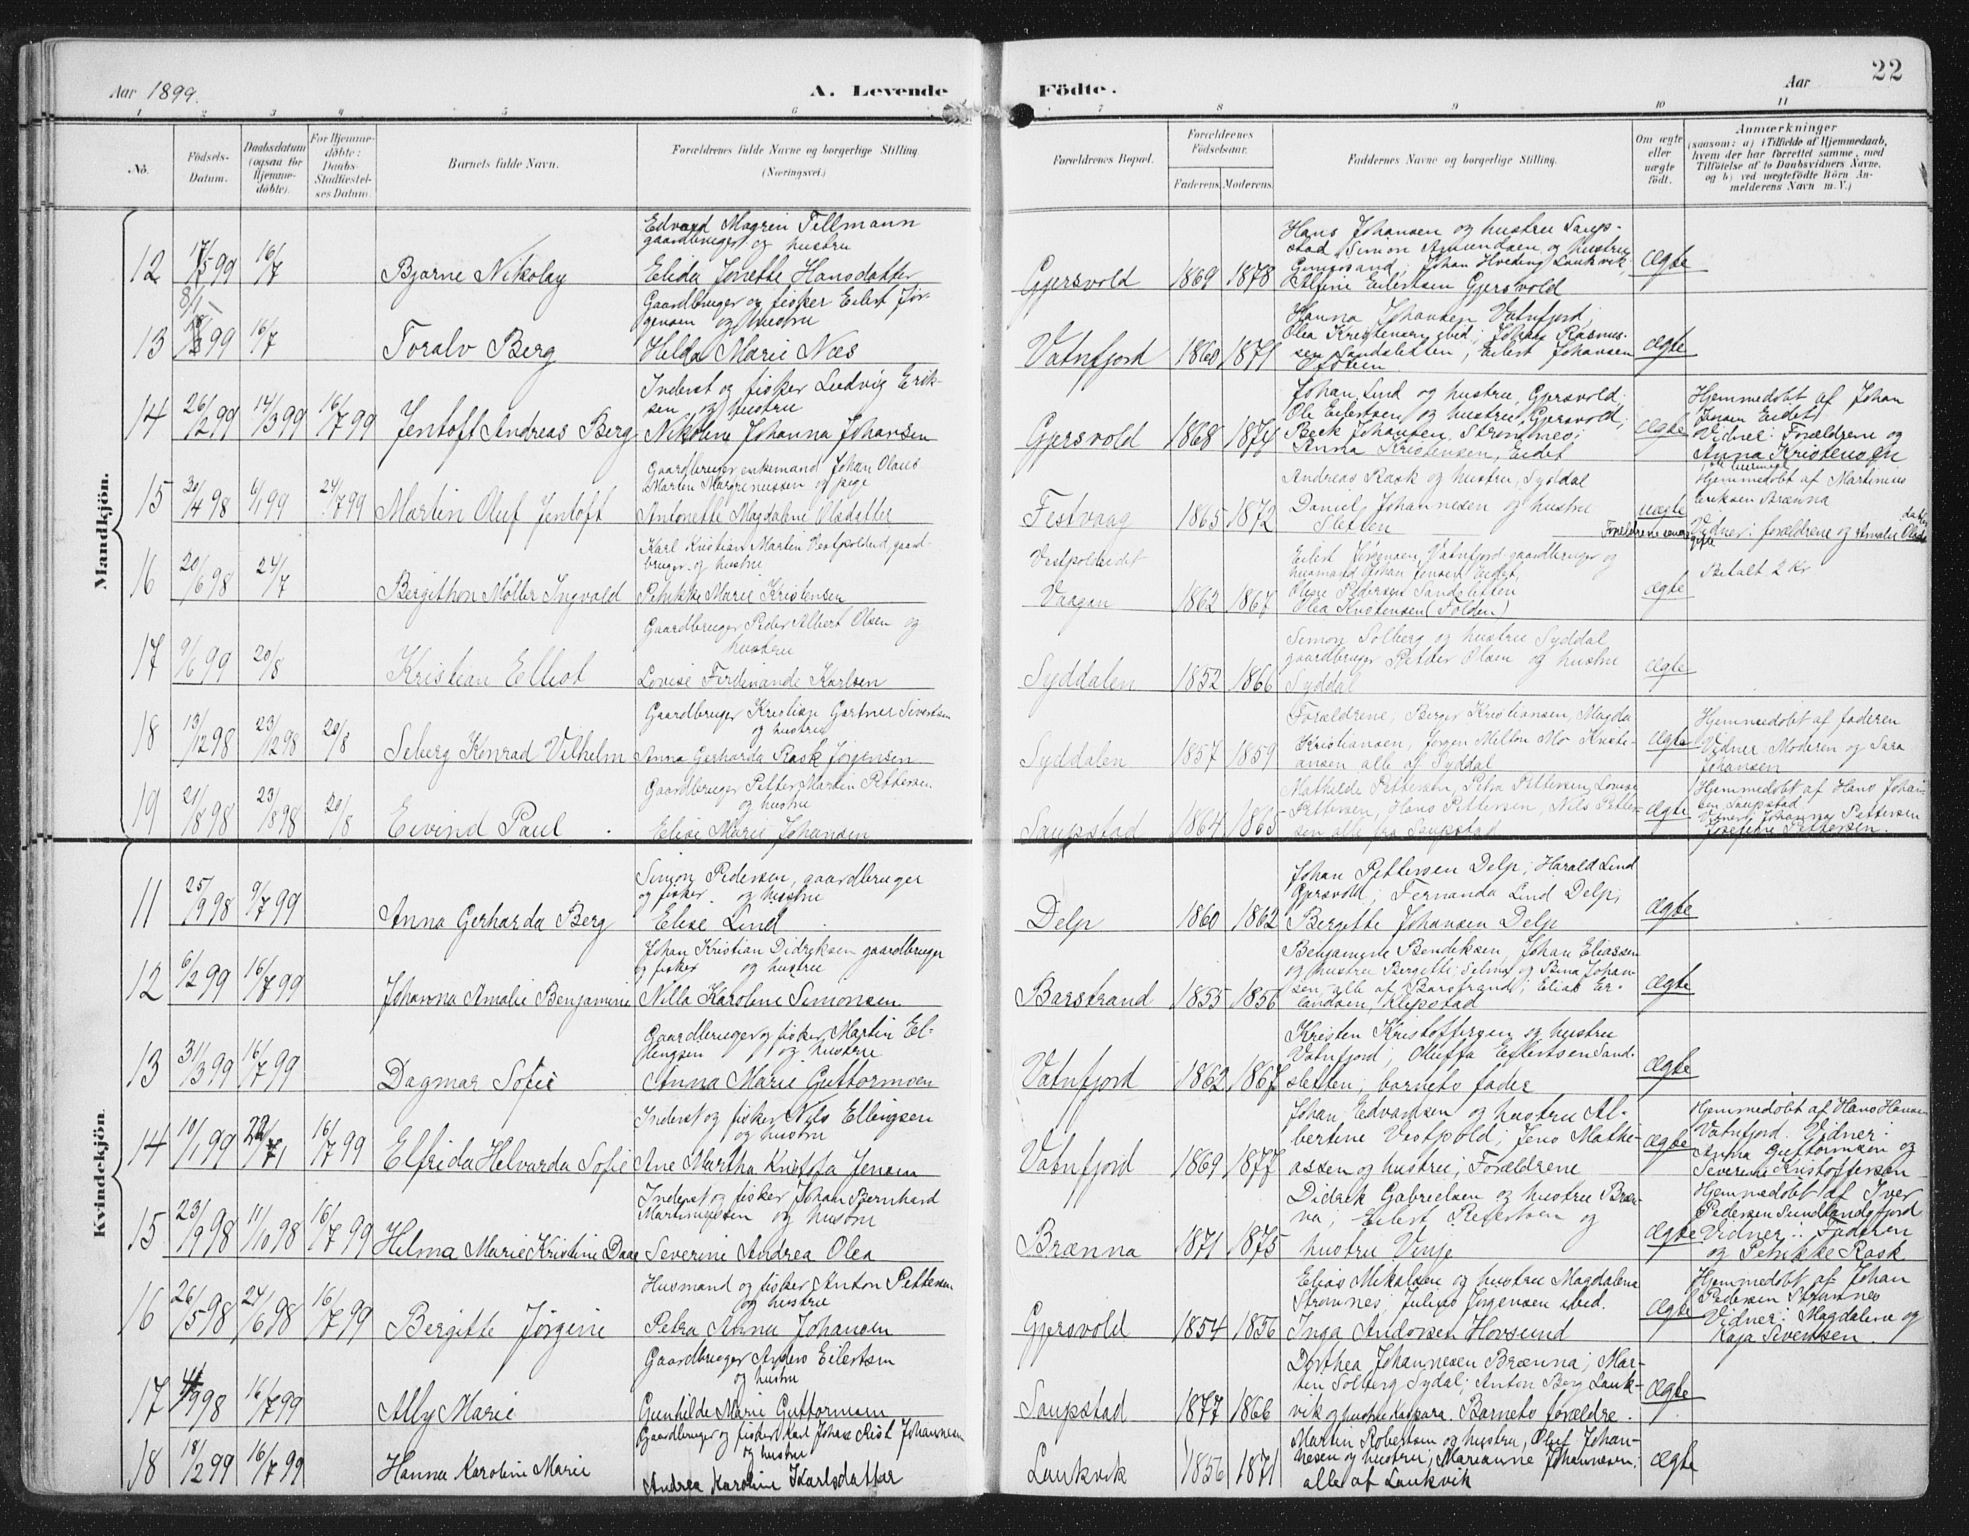 Aar 1899. A. Levende Födte. Aar 22
1 2 3 4 5 6 7 8 9 10 11
No. Födsels-Datum. Daabsdatum (ogsaa for Hjemmedöbte). For Hjemmedöbte: Daabs-Stadfæstelses Datum. Barnets fulde Navn. Forældrenes fulde Navne og borgerlige Stilling. (Næringsvei.) Forældrenes Bopæl. Forældrenes Födselsaar. Faderens. Moderens. Faddernes Navne og borgerlige Stilling. Om ægte eller uægte födt. Anmærkninger (saasom: a) i Tilfælde af Hjemmedaab, hvem der har forrettet samme, med Tilföielse af to Daabsvidners Navne, og b) ved uægtefödte Börn Anmelderens Navn m. V.)
Mandkjön.
12 17/5 99 16/7 Bjarne Nikolay
Edvard Magrin Tellmann
gaardbruger og hustru
Elida Jonette Hansdatter
Gjersvold 1869 1878
Hans Johansen og hustru Saup-
stad, Simon Amundsen og hustru
Gimsosand, Johan Hveding Laukvik
Alfine Eilertsen Gjersvold
Ægte
13 8/1 99 16/7 Toralv Berg
Gaardbruger og fisker Eilert Jør-
gensen og hustru
Hilda Marie Næs
Vatnfjord 1860 1871
Hanna Johansen Vatnfjord;
Olea Kristensen ibid; Johan Rasmus-
sen Sandsletten; Eilert Johansen
ægte
14 26/2 99 14/3 99 16/7 99 Jentoft Andreas Berg
Inderst og fisker Ludvig Erik-
sen og hustru
Nikoline Johanna Johansen
Gjersvold 1868 1874
Johan Lind og hustru, Gjersvold;
Ole Eilertsen og hustru, Gjersvold;
Beck Johansen, Strømnes;
Anna Kristensen, Eidet
ægte
Hjemmedøbt af Johan
Jensen Eidet
Vidner: Forældrene og
Anna Kristensen
15 30/4 98 6/1 99 24/7 99 Martin Oluf Jentoft
Gaardbruger enkemand Johan Olaus
Martin Margrenussen og pige
Antonette Magdalene Olsdatter
Festvaag 1865 1872
Andreas Rask og hustru, Syddal
Daniel Johannesen og hustru
Sletten
uægte
Hjemmedøbt af Martinius
Eriksen Brænna
Vidner: forældrene og Amalie Olsdatter
16 20/6 98 24/7 Bergithon Møller Ingvald
Karl Kristian Martin Vestpoldeid, gaard-
bruger og hustru
Petrikke Marie Kristensen
Vestpolleidet
Vaagan 1862 1867
Eilert Jørgensen, Vatnfjord gaardbruger og
husmand Johan Jensen Eidet,
Oline Pedersen Sandsletten
Olea Kristensen (Folden)
ægte
Betalt 2 kr
17 9/6 99 20/8 Kristian Elliot
Gaardbruger Peder Albert Olsen og
hustru
Lovise Ferdinande Karlsen
Syddalen 1852 1866
Simon Solberg og hustru Syddal
gaardbruger Petter Olsen og hustru
Syddal
ægte
18 13/12 98 23/12 98 20/8 Seberg Konrad Vilhelm
Gaardbruger Kristian Gartner Sivertsen
og hustru
Anna Gerharda Rask Jørgensen
Syddalen 1857 1859
Forældrene, Berger Kristiansen, Magda
Kristiansen, Jørgen Milton Mo Kristi-
ansen alle af Syddal
ægte
Hjemmedøbt af faderen
Vidner: Moderen og Sara
Johansen
19 21/8 98 23/8 98 20/8 Eivind Paul
Gaardbruger Petter Martin Pettersen
og hustru
Elise Marie Johansen
Saupstad 1864 1865
Mathilde Pettersen, Petra Pettersen, Lovise
Pettersen, Hans Pettersen, Nils Petter-
sen alle fra Saupstad
ægte
Hjemmedøbt af Hans Johan-
sen, Saupstad
Vidner: Johanna Pettersen
Josefine Pettersen.
Kvindekjön.
11 25/9 98 9/7 99 Anna Gerharda Berg
Simon Pedersen, gaardbruger
og fisker og hustru
Elise Lind
Delp 1860 1862
Johan Pettersen Delp; Harald Lind
Gjersvold, Fernanda Lind Delp;
Bergitte Johansen Delp
Ægte
12 6/2 99 16/7 99 Johanna Amalie Benjamine
Johan Kristian Didriksen gaardbruger
og fisker og hustru
Nilla Karoline Simonsen
Barstrand 1855 1856
Benjamine Bendiksen, Johan Eliassen
og hustru Bergitte; Selma og Bina Johan-
sen, alle af Barstrand; Elias Er-
landsen, Klepstad
Ægte
13 31/3 99 16/7 99 Dagmar Sofie
Gaardbruger og fisker Martin El-
lingsen og hustru
Anna Marie Guttormsen
Vatnfjord 1862 1867
Kristen Kristoffersen og hustru
Vatnfjord; Oluffa Eilertsen Sand-
sletten; barnets fader
Ægte
14 10/1 99 16/7 99 Elfrida Helvarda Sofie
Inderst og fisker Nils Ellingsen
og hustru
Ane Martha Kristofa Jensen
Vatnfjord 1869 1877
Johan Edvardsen og hustru Al-
bertine Vestpold; Jens Mathi-
assen og hustru; Forældrene
ægte
Hjemmedøbt af Hans Hansen
Vatnfjord. Vidner:
Anna Guttormsen og
Severine Kristoffersen
15 23/9 98 11/10 98 16/7 99 Helma Marie Kristine Daae
Inderst og fisker Johan Bernhard
Martinussen og hustru
Severine Andrea Olea
Brænna 1871 1875
Didrik Gabrielsen og hustru Bræn-
na; Eilert Pedersen og
hustru Vinje
Ægte
Hjemmedøbt af Iver
Pedersen Sundlandsfjord
Vidner: Faderen
og Petrikke Rask
16 26/5 98 24/6 98 16/7 99 Bergitte Jørgine
Husmand og fisker Anton Pettersen
og hustru
Petra Anna Johansen
Gjersvold 1854 1856
Elias Mikalsen og hustru Magdalena
Strømnes; Julius Jørgensen ibid.
Inga Andorsen Hovsund
Ægte
Hjemmedøbt af Johan
Pedersen Strømnes
Vidner: Magdalena og
Kaja Sivertsen.
17 98 16/7 99 Ally Marie
Gaardbruger Anders Eilertsen
og hustru
Gunhilde Marie Guttormsen
Saupstad 1877 1866
Dorthea Johannesen Brænna; Mar-
tin Solberg Sydal; Anton Berg Lauk-
vik og hustru Kaspara. Barnets forældre.
Ægte
18 18/2 99 16/7 99 Hanna Karoline Marie
Gaardbruger og fisker Karl Johan Rist Johannesen
og hustru
Andrea Karoline Karlsdatter
Laukvik 1856 1871
Martin Robertsen og hustru, Oluf Johan-
nesen og hustru; Marianne Johannesen;
alle af Laukvik
Ægte